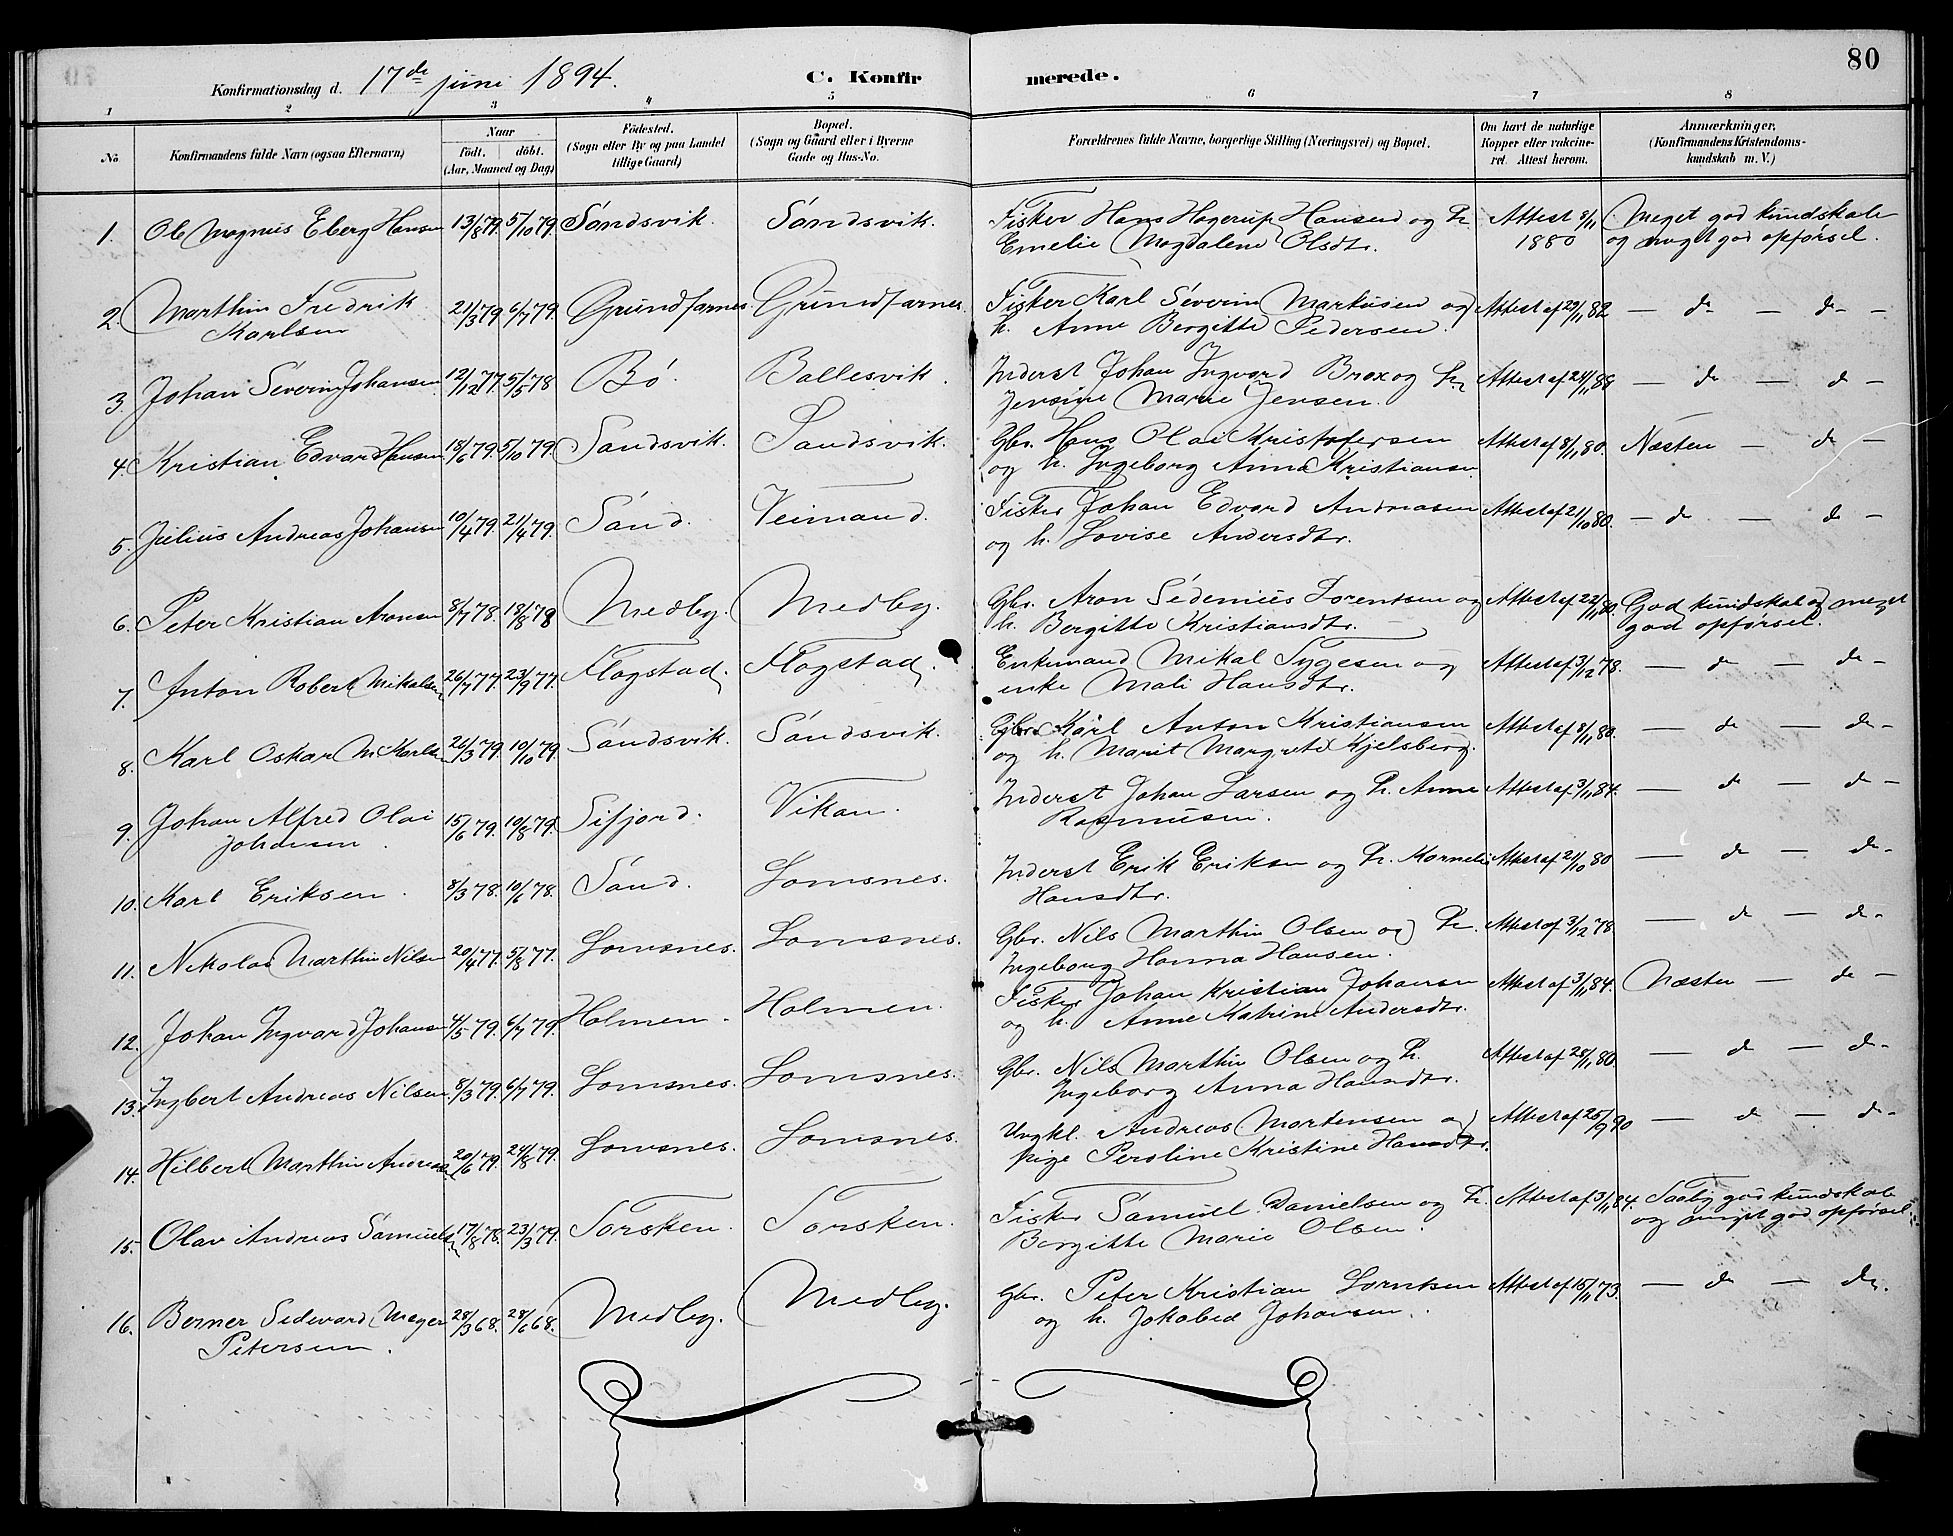 80
Konfirmationsdag d. 17de juni 1894.
C. Konfirmerede.
1 2 3 4 5 6 7 8
No
Konfirmandens fulde Navn (ogsaa Efternavn)
Naar
födt. döbt.
(Aar, Maaned og Dag)
Födested.
(Sogn eller By og paa Landet
tillige Gaard)
Bopæl.
(Sogn og Gaard eller i Byerne
Gade og Hus-No.
Forældrenes fulde Navne, borgerlige Stilling (Næringsvei) og Bopæl.
Om havt de naturlige
Kopper eller vakcine-
ret. Attest herom.
Anmærkninger.
(Konfirmandens Kristendoms-
kundskab m. V.)
1. Ole Magnus Eberg Hansen 13/8 79. 5/10 79. Sandsvik. Sandsvik. Fisker Hans Hagerup Hansen og h. Attest 8/11 Meget god kundskab
Emelie Magdalene Olsdtr. 1880 og meget god opførsel.
2. Marthin Fredrik 21/3 79 6/7 79. Grundfarnes. Grundfarnes. Fisker Karl Severin Markusen og Attest af 29/11 82 — do — do —
Karlsen h. Anne Bergitte Pedersen.
3. Johan Severin Johansen 12/12 77. 5/5 78 Bø. Ballesvik. Inderst Johan Ingvard Brox og h. Attest af 24/11 88 — do — do —
Jensine Marie Jensen.
4. Kristian Edvard Hansen 18/6 79. 5/10 79. Sandsvik. Sandsvik. Gbr. Hans Olai Kristofersen Attest af 8/11 80. Næsten — do —
og h. Ingeborg Anna Kristiansen
5. Julius Andreas Johansen 10/4 79. 21/4 79. Sand. Veimand. Fisker Johan Edvard Andreasen Attest af 21/10 80. — do — do —
og h. Lovise Andersdtr.
6. Peter Kristian Aronsen 8/7 78. 18/8 78 Medby. Medby. Gbr. Aron Sedenius Lorentsen og Attest af 22/11 80. God kundskab og meget
h. Bergitte Kristiansdtr. god opførsel.
7. Anton Robert Mikalsen 26/7 77. 23/9 77. Flagstad. Flagstad. Enkemand Mikal Tygesen og Attest af 3/12 78. — do — do —
enke Mali Hansdtr.
8. Karl Oskar M. Karlsen 26/3 79. 10/10 79. Sandsvik. Sandsvik. Gbr. Karl Anton Kristiansen Attest af 8/11 80. — do — do —
og h. Marit Margrete Kjelsberg.
9. Johan Alfred Olai 15/6 79. 10/8 79. Sifjord. Vikan. Inderst Johan Larsen og h. Anne Attest af 3/11 84. — do — do —
Johansen. Rasmusen.
10. Karl Eriksen. 8/3 78. 10/6 78. Sand. Lomsnes. Inderst Erik Eriksen og h. Kornelia Attest af 21/10 80 — do — do —
Hansdtr.
11. Nikolas Marthin Nilsen 20/4 77. 5/8 77. Lomsnes. Lomsnes. Gbr. Nils Marthin Olsen og h. Attest af 3/12 78 — do — do —
Ingeborg Hanna Hansen.
12. Johan Ingvard Johansen 4/5 79. 6/7 79. Holmen. Holmen. Fisker Johan Kristian Johansen Attest af 3/11 84. Næsten — do —
og h. Anne Katrine Andersdtr.
13. Ingbert Andreas Nilsen 8/3 79. 6/7 79. Lomsnes. Lomsnes. Gbr. Nils Marthin Olsen og h. Attest af 28/11 80. — do — do —
Ingeborg Anna Hansdtr.
14. Hilbert Marthin Andreasen 20/6 79. 24/8 79. Lomsnes. Lomsnes. Ungkl. Andreas Mortensen og Attest af 25/9 90 — do — do —
pige Peroline Kristine Hansdtr.
15. Olav Andreas Samuelsen 17/8 78. 23/3 79. Torsken. Torsken. Fisker Samuel Danielsen og h. Attest af 3/11 84. Taalig god kundskab
Bergitte Marie Olsen. og meget god opførsel.
16. Berner Sedevard Meyer 28/3 68. 28/6 68. Medby. Medby. Gbr. Peter Kristian Lorntsen Attest af 15/11 73. — do — do.
Petersen. og h. Jokabed Johansen.